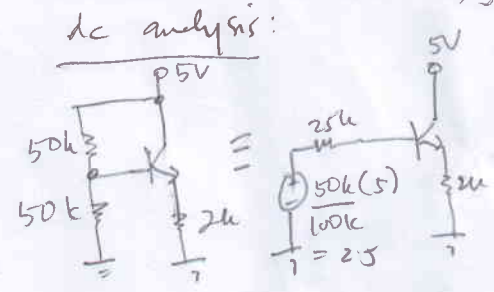 dc analysis:
5V
5V
50k
50k
2k
=
25k
50k(5)
100k
= 2.5
2k